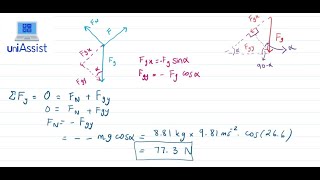 uniAssist
Fgx = -Fg sinα
Fgy = - Fg cosα
Fg
α
90-α
ΣFy = 0 = FN + Fgy
0 = FN + Fgy
FN = - Fgy
= - - mg cosα = 8.81 kg × 9.81 ms⁻² . cos(26.6)
= 77.3 N